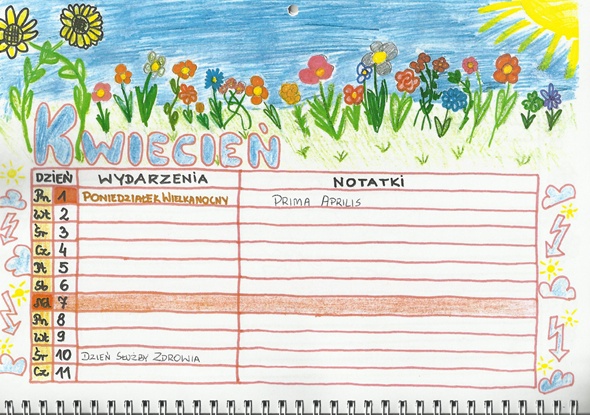 Kwiecień
DZIEŃ WYDARZENIA NOTATKI
Pn 1 Poniedziałek Wielkanocny Prima Aprilis
Wt 2
Śr 3
Cz 4
Pt 5
Sb 6
Nd 7
Pn 8
Wt 9
Śr 10 Dzień Służby Zdrowia
Cz 11